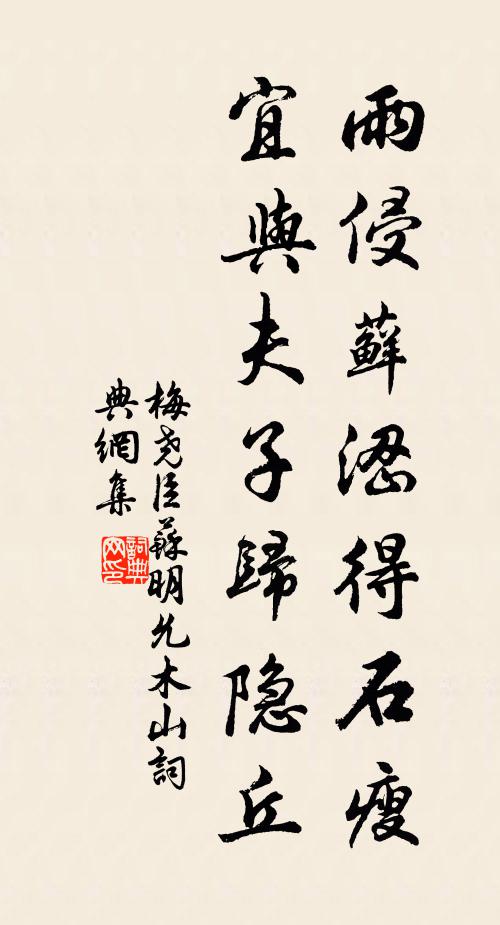 雨侵蘚澀得石瘦
宜與夫子歸隐丘
梅尧臣蘇明允木山詞
典網集
詞典
网印